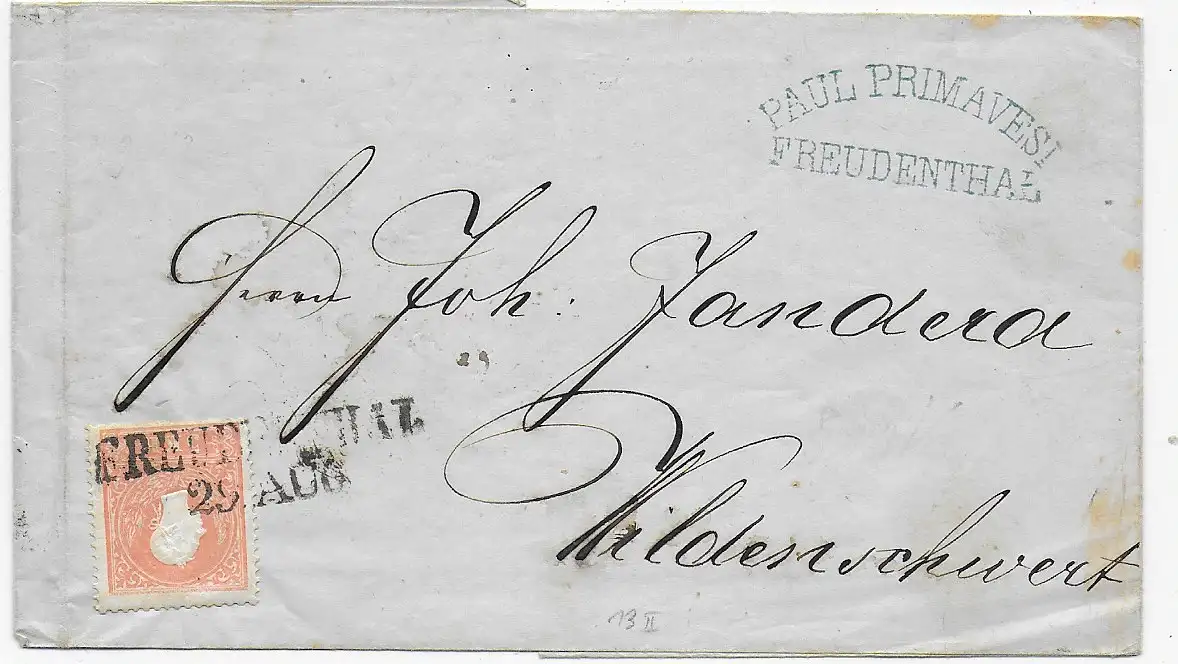 PAUL PRIMAVESI
FREUDENTHAL
Herrn Joh: Jandera
Wildenschwert
FREUDENTHAL
29. AUG
13 II